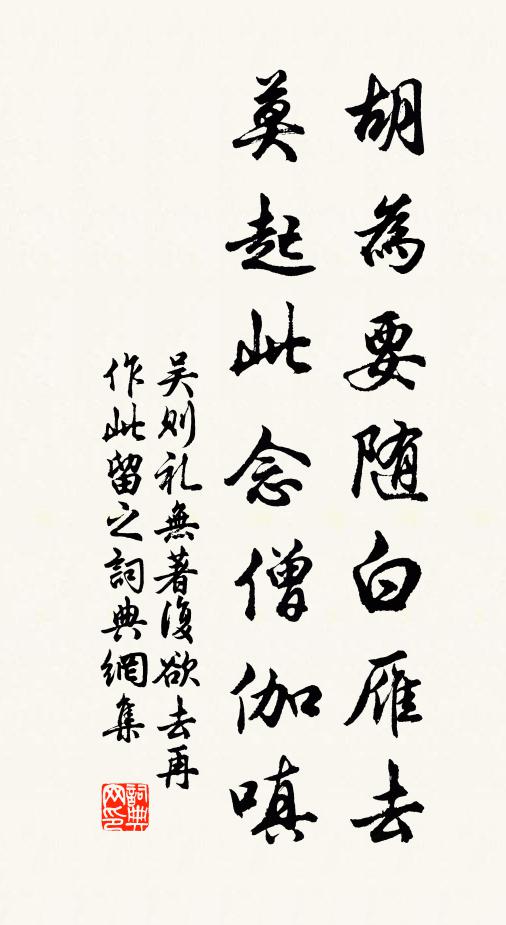 胡為要随白雁去
莫起此念僧伽嗔
吴则礼無著復欲去再
作此留之詞典網集
詞典网印